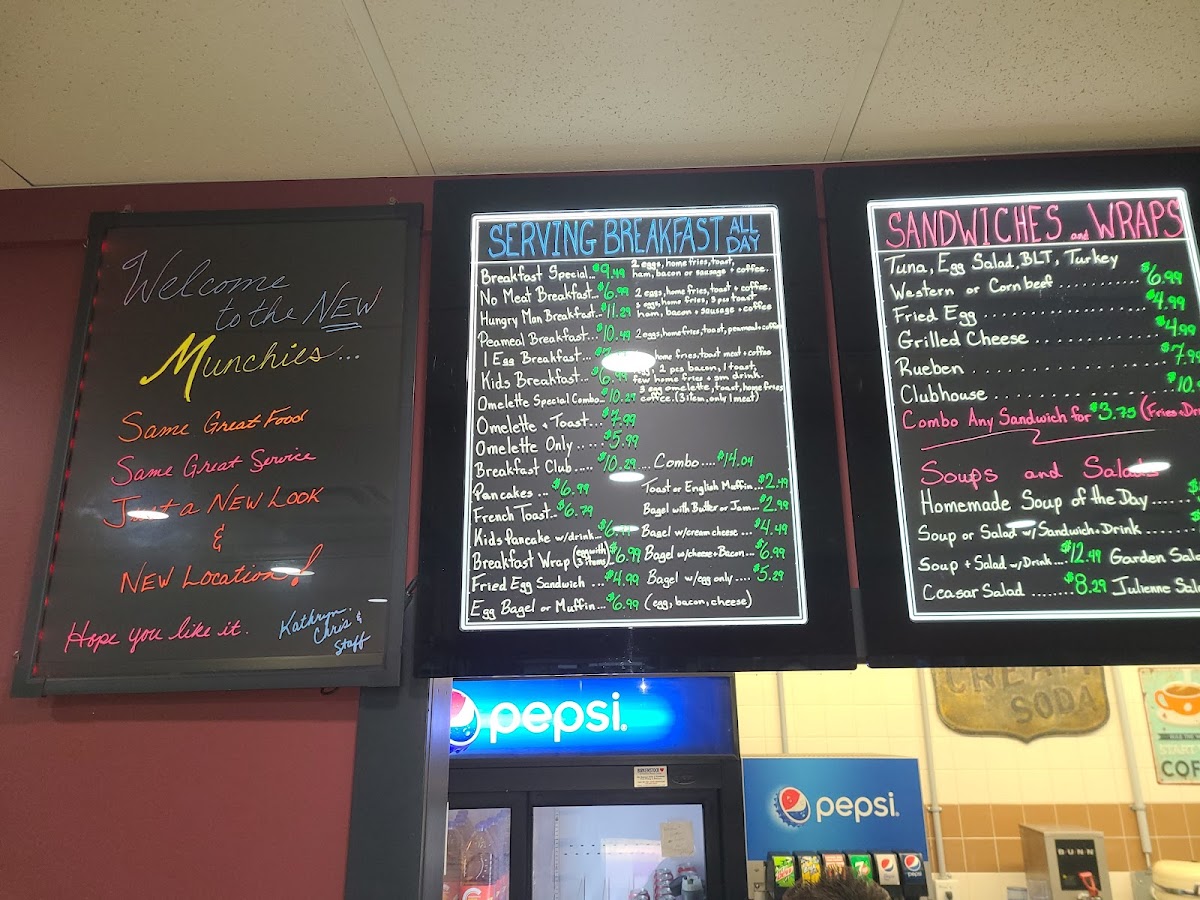 Welcome
to the NEW
Munchies...
Same Great Food
Same Great Service
Just a NEW LOOK
&
NEW LOCATION!
Hope you like it.
Kathryn
Chris &
Staff
SERVING BREAKFAST ALL DAY
Breakfast Special... $9.49 2 eggs, home fries, toast, ham, bacon or sausage + coffee.
No Meat Breakfast... $6.99 2 eggs, home fries, toast + coffee.
Hungry Man Breakfast... $11.29 3 eggs, home fries, 3 pcs toast ham, bacon + sausage + coffee
Peameal Breakfast... $10.49 2 eggs, home fries, toast, peameal + coffee
1 Egg Breakfast... home fries, toast meat + coffee
Kids Breakfast... $6.99 2 pcs bacon, 1 toast, few home fries + sm drink.
Omelette Special Combo... $10.29 3 egg omelette, toast, home fries coffee. (3 item, only 1 meat)
Omelette + Toast... $7.99
Omelette Only... $5.99
Breakfast Club..... $10.29 .... Combo.... $14.04
Pancakes ... $6.99 Toast or English Muffin... $2.49
French Toast... $6.79 Bagel with Butter or Jam... $2.99
Kids Pancake w/drink.. Bagel w/cream cheese... $4.49
Breakfast Wrap (egg with 3 items) $6.99 Bagel w/cheese + Bacon... $6.99
Fried Egg Sandwich ... $4.99 Bagel w/egg only.... $5.29
Egg Bagel or Muffin... $6.99 (egg, bacon, cheese)
SANDWICHES and WRAPS
Tuna, Egg Salad, BLT, Turkey
Western or Cornbeef ........... $6.99
Fried Egg ................. $4.99
Grilled Cheese ............. $4.99
Rueben ................. $7.99
Clubhouse ................
Combo Any Sandwich for $3.75
Soups and Salads
Homemade Soup of the Day.....
Soup or Salad w/ Sandwich + Drink....
Soup + Salad w/Drink.... $12.49 Garden
Ceasar Salad ........ $8.29 Julienne
pepsi.
pepsi.
CREAM
SODA
BUNN
START
COF